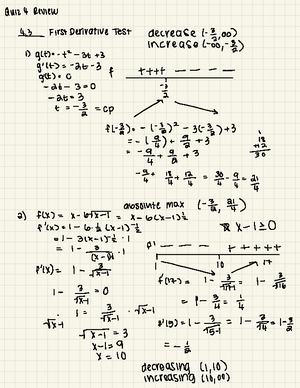 Quiz 4 Review
4.3 First Derivative Test
decrease (-3/2, ∞)
increase (-∞, -3/2)
1) g(t) = -t² - 3t + 3
g'(t) = -2t - 3
g'(t) = 0
-2t - 3 = 0
-2t = 3
t = -3/2 = cp
f ++++ — — — —
-3/2
f(-3/2) = -(-3/2)² - 3(-3/2) + 3
= -(9/4) + 9/2 + 3
= -9/4 + 9/2 + 3
-9/4 + 18/4 + 12/4 = 30/4 - 9/4 = 21/4
1
18
+12
30
absolute max (-3/2, 21/4)
2) f(x) = x - 6√x-1 = x - 6(x-1)^½
f'(x) = 1 - 6·½(x-1)^-½
= 1 - 3(x-1)^-½ · 1
f'(x) = 1 - 3/√x-1
1 - 3/√x-1 = 0
√x-1 · 1 = 3/√x-1 · √x-1
√x-1 = 3
x-1 = 9
x = 10
x-1 ≥ 0
— — — — + + + + +
1 10 17
f'(17) = 1 - 3/√17-1 = 1 - 3/√16
= 1 - 3/4 = 1/4
f'(5) = 1 - 3/√5-1 = 1 - 3/√4 = 1 - 3/2
= -1/2
decreasing (1,10)
increasing (10,∞)